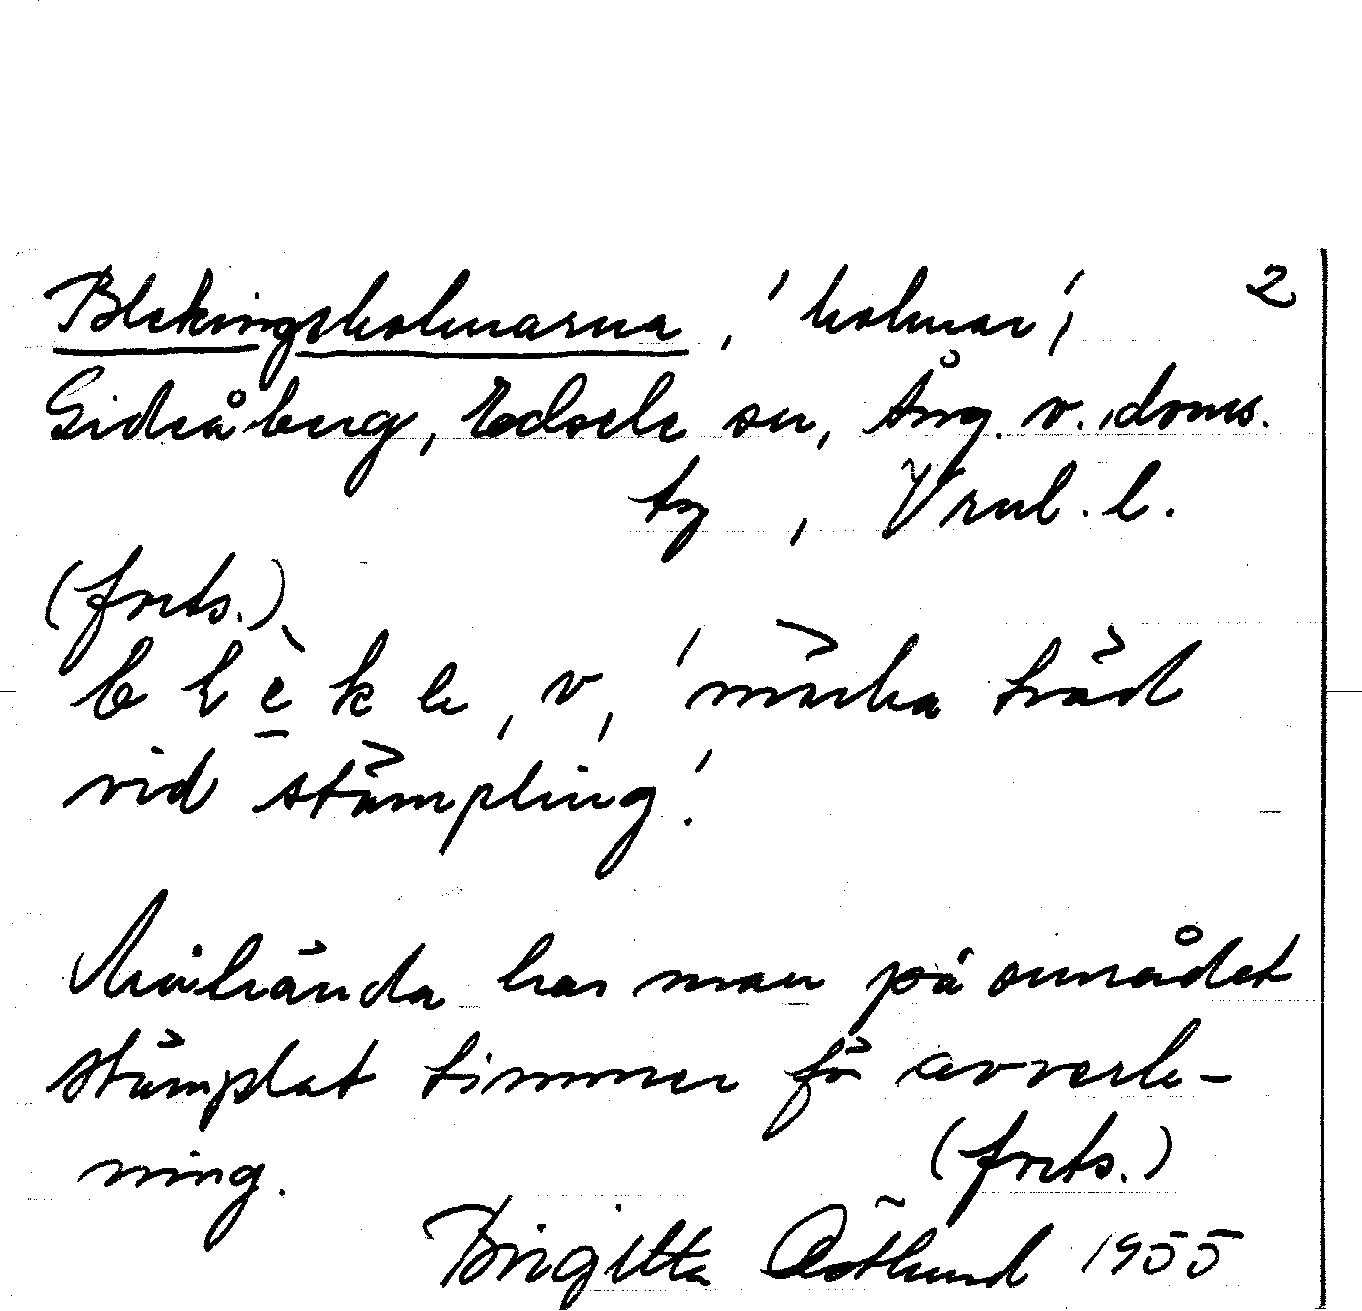 Blekingsholmarna, 'holmar', 2
Gideåberg, Edsele sn, Ång. v. doms.
by, Vrnl. l.
(forts.)
blèke, v, 'märka träd
vid stämpling'.
Måhända har man på området
stämplat timmer för avverk-
ning. (forts.)
Birgitta Östlund 1955